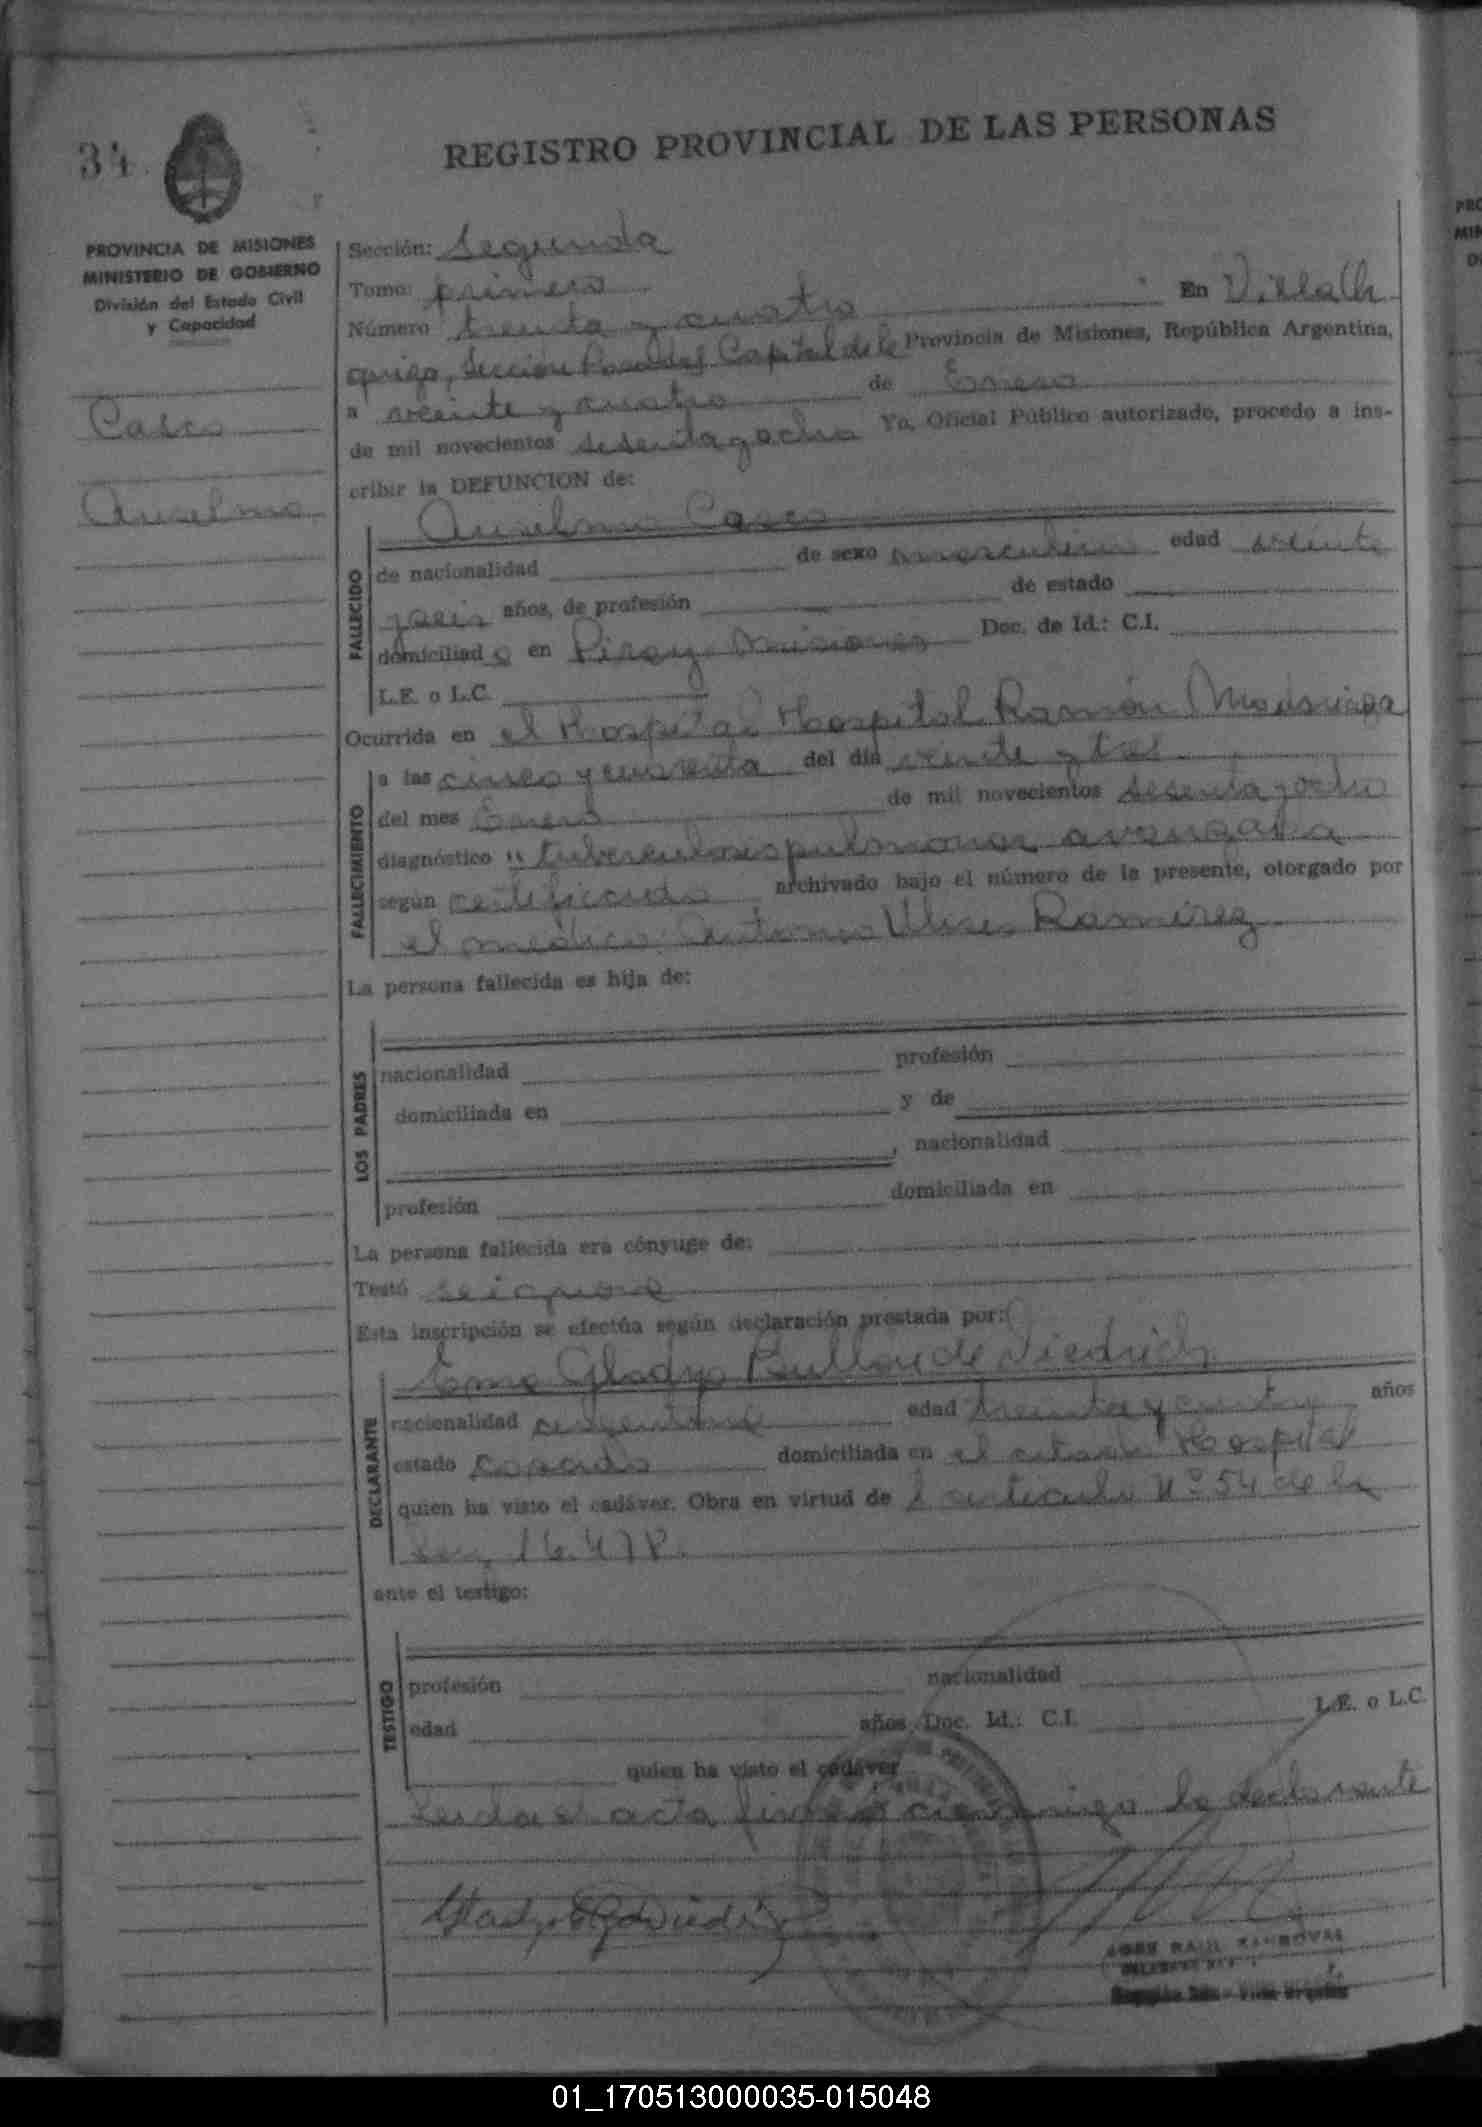 34
REGISTRO PROVINCIAL DE LAS PERSONAS
PROVINCIA DE MISIONES
MINISTERIO DE GOBIERNO
División del Estado Civil
y Capacidad
Casco
Anselmo
Sección: Segunda
Tomo: primero
Número treinta y cuatro En Villa Ur
quiza, Sección Posadas Capital de la Provincia de Misiones, República Argentina,
a veinte y cuatro de Enero
de mil novecientos sesenta y ocho Yo, Oficial Público autorizado, procedo a ins-
cribir la DEFUNCION de:
Anselmo Casco
FALLECIDO
de nacionalidad de sexo masculino edad veinte
y seis años, de profesión de estado
domiciliado en Piray Misiones Doc. de Id.: C.I.
L.E. o L.C.
Ocurrida en el Hospital Hospital Ramón Madariaga
FALLECIMIENTO
a las cinco y cuarenta del día veinte y tres
del mes Enero de mil novecientos sesenta y ocho
diagnóstico " tuberculosis pulmonar avanzada
según certificado archivado bajo el número de la presente, otorgado por
el médico: Antonio Ulises Ramírez
La persona fallecida es hija de:
LOS PADRES
nacionalidad profesión
domiciliada en y de
, nacionalidad
profesión domiciliada en
La persona fallecida era cónyuge de:
Testó se ignora
Esta inscripción se efectúa según declaración prestada por:
Gladys de Diedrich
DECLARANTE
nacionalidad argentina edad treinta y años
estado casada domiciliada en el citado Hospital
quien ha visto el cadáver. Obra en virtud de l articulo Nº 54 de la
Ley 16.478.
ante el testigo:
TESTIGO
profesión nacionalidad
edad años, Doc. Id.: C.I. L.E. o L.C.
quien ha visto el cadáver
Leida el acta firma conmigo la declarante
JOSE RAUL SANDOVAL
01_170513000035-015048